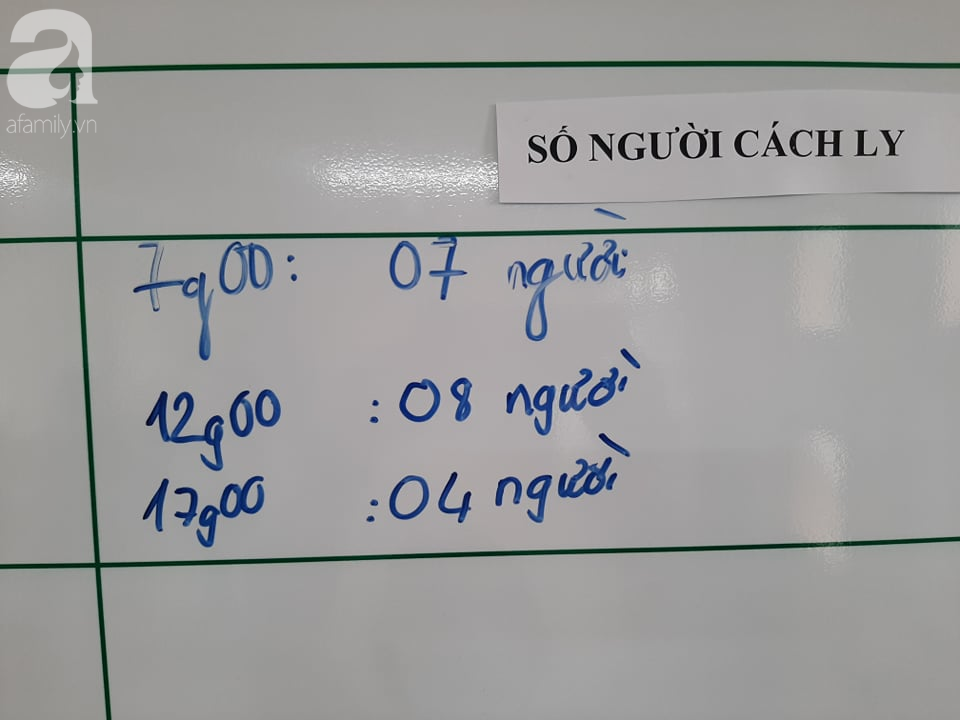 a
afamily.vn
SỐ NGƯỜI CÁCH LY
7g00: 07 người
12g00 : 08 người
17g00 : 04 người